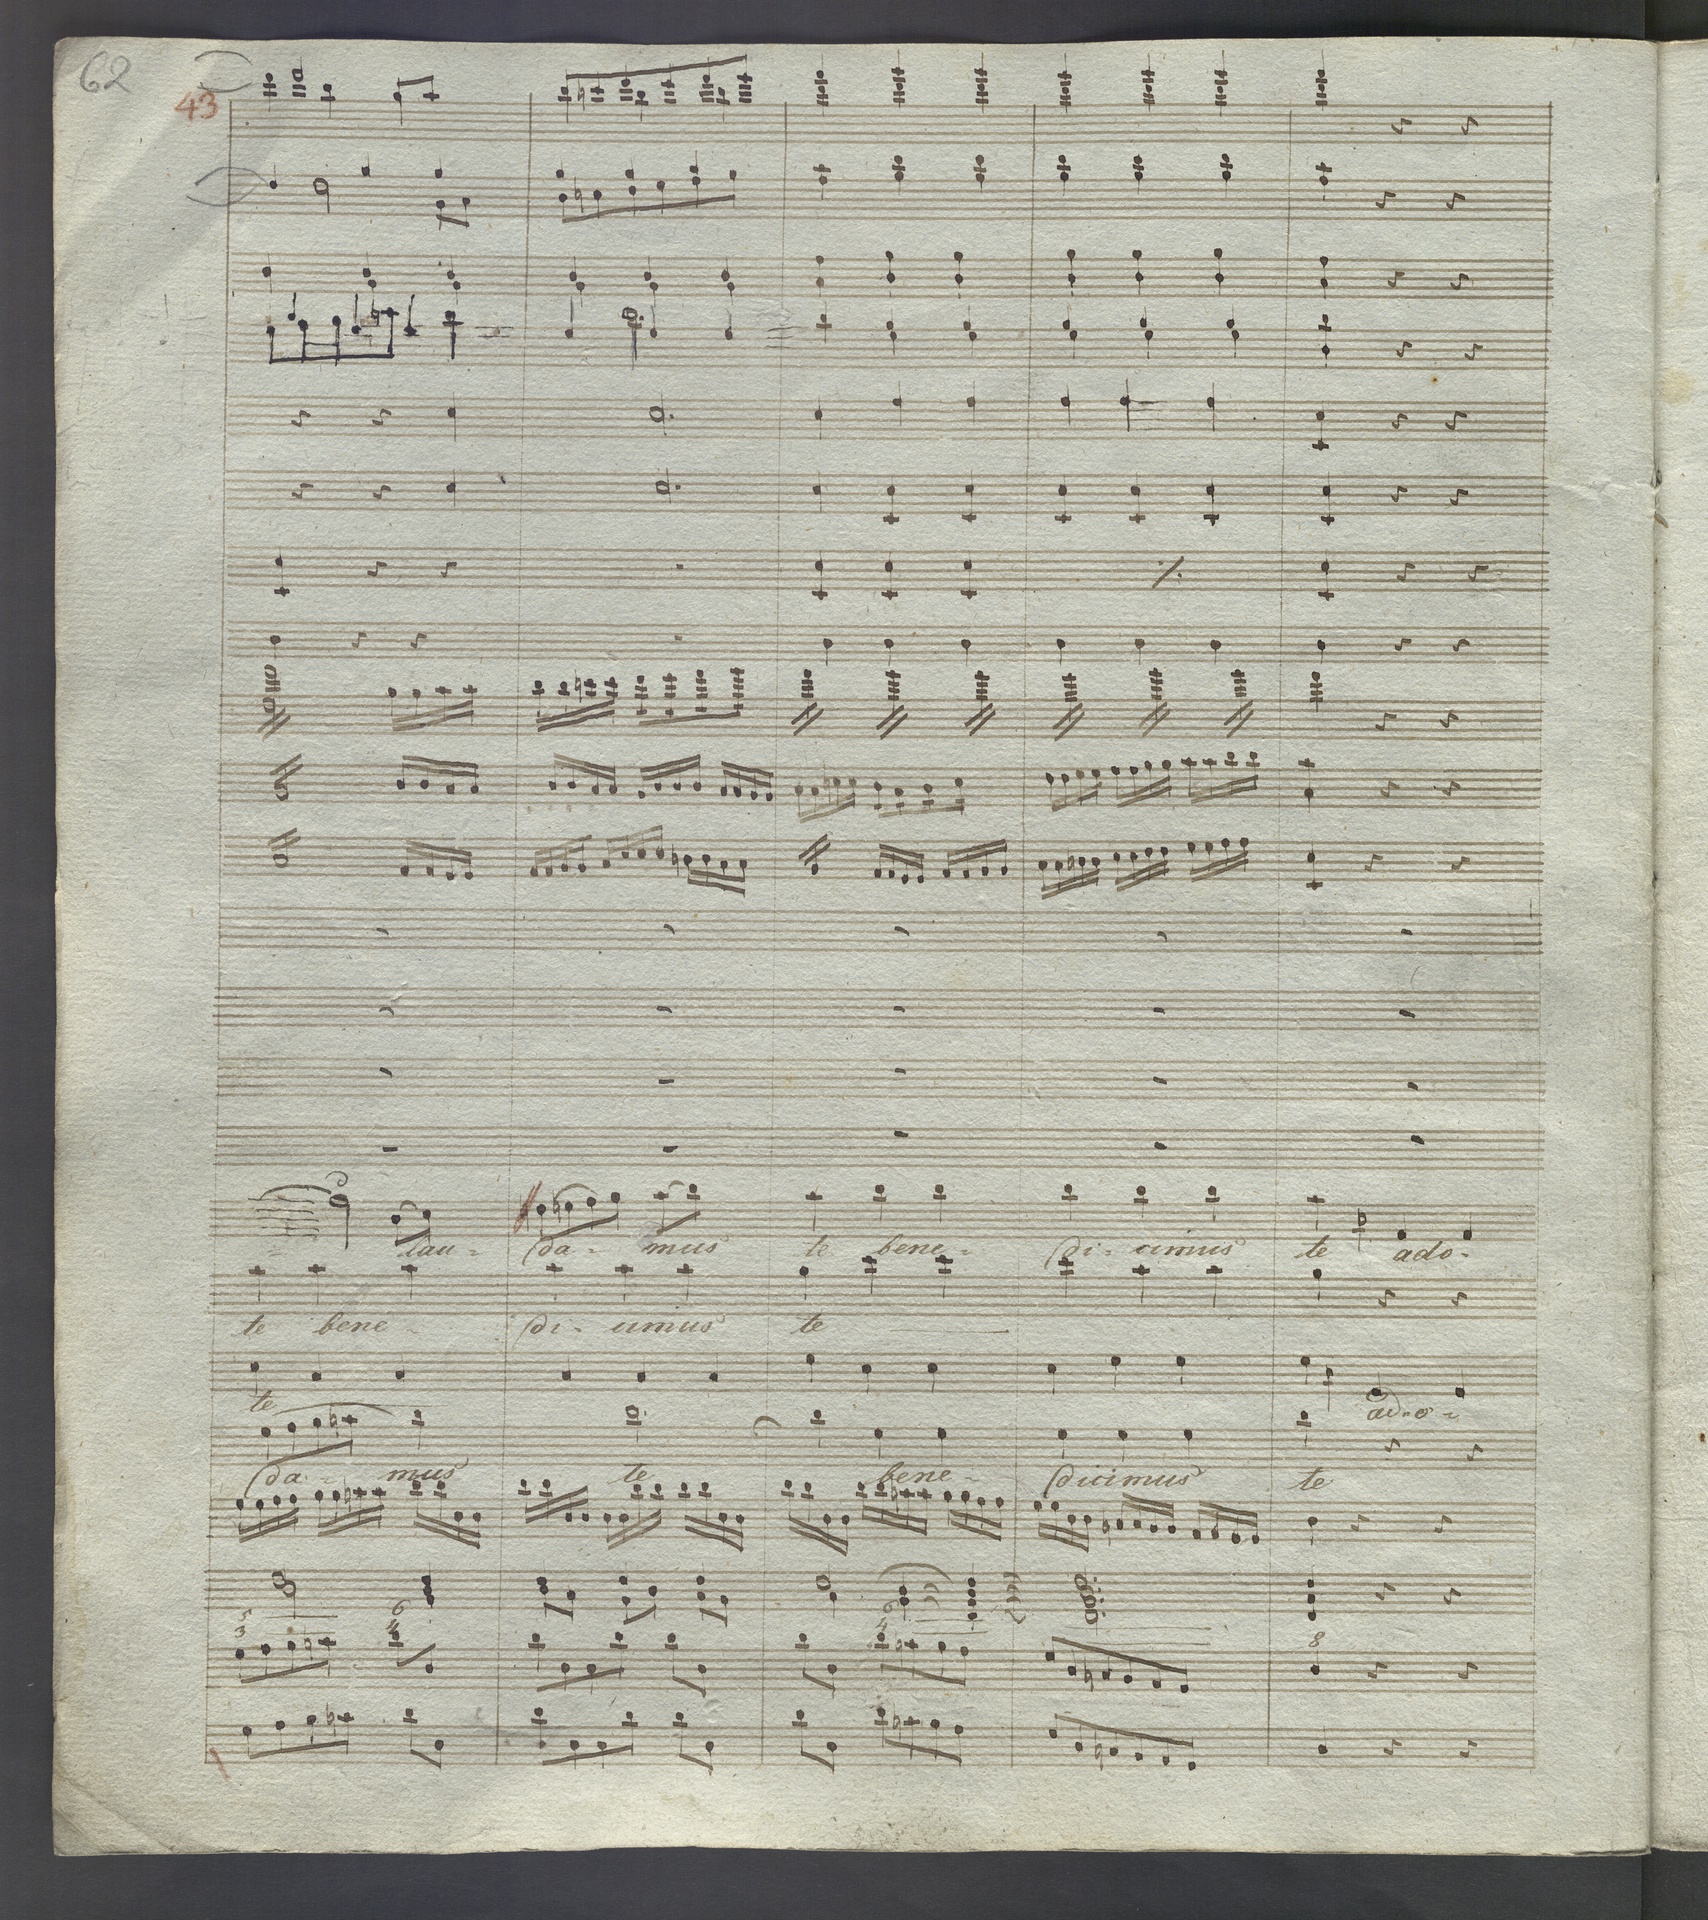 62
43
lau - da - mus te bene - di - cimus te ado -
te bene - di - cimus te
te ado -
da - mus te bene - dicimus te
5 6 6
3 4 4 8